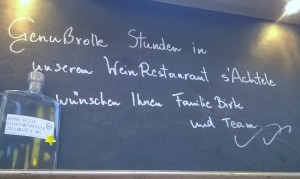 Genußvolle Stunden in
unserem WeinRestaurant s'Achtele
wünschen Ihnen Familie Birk
und Team